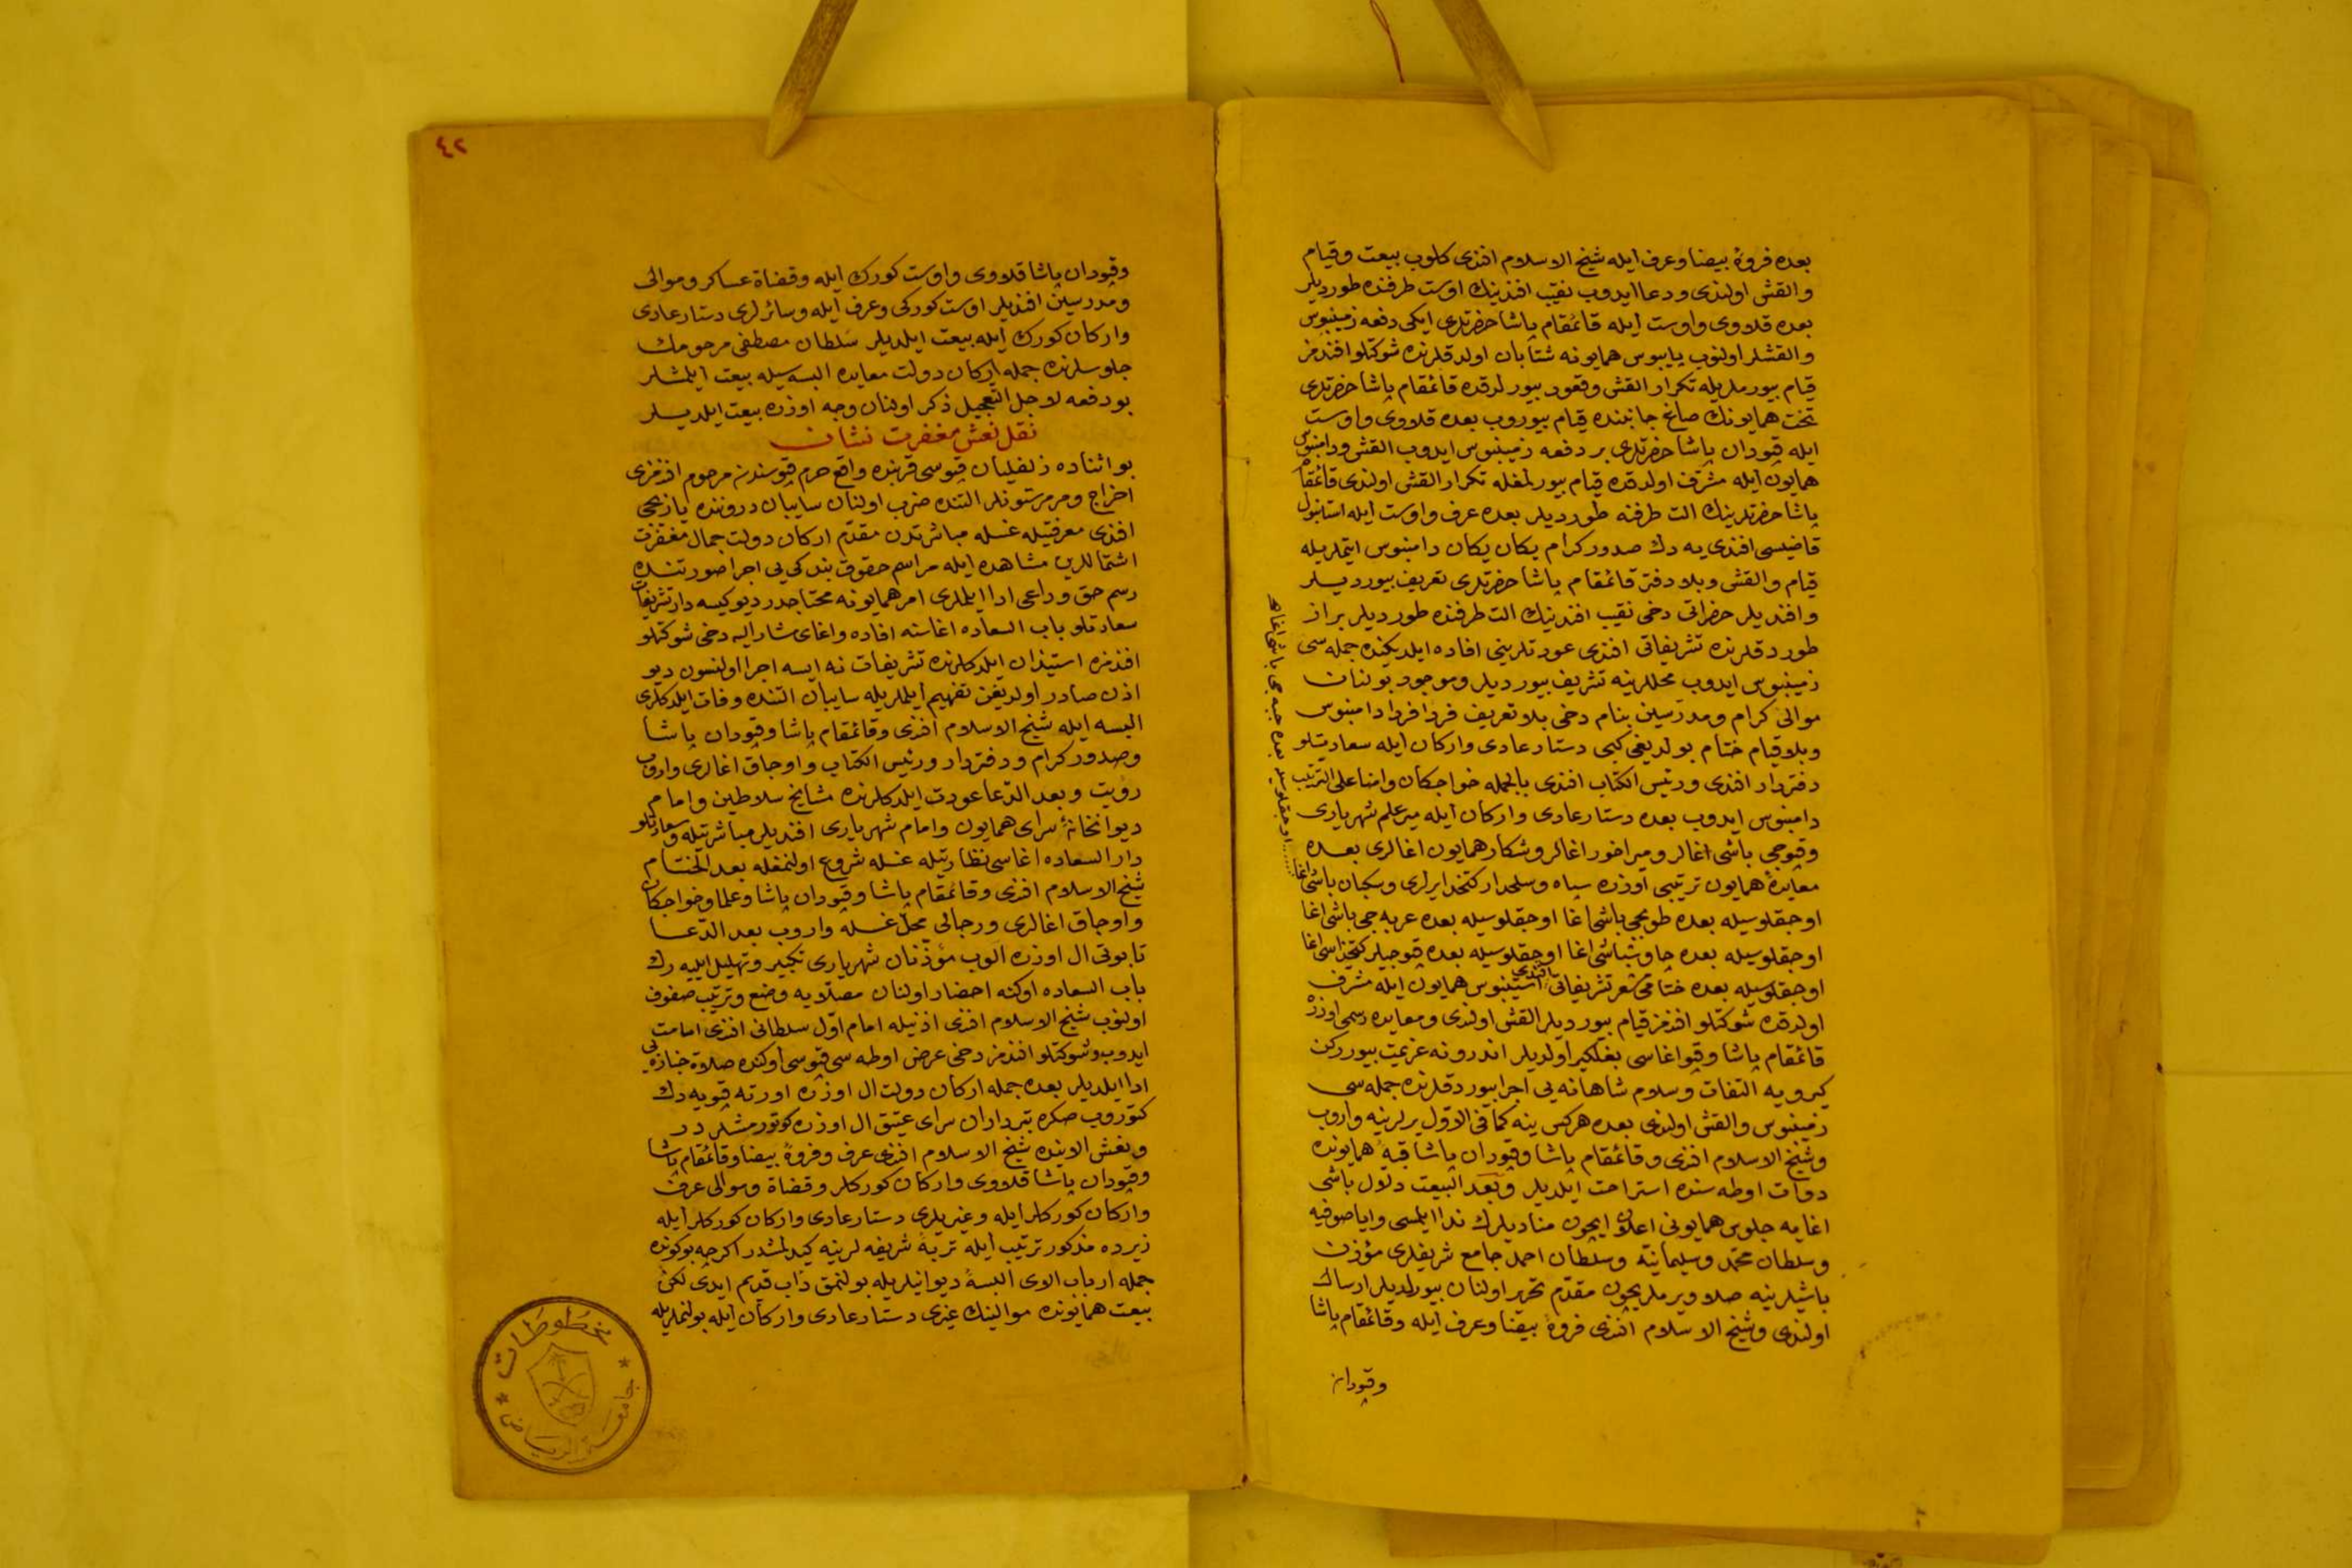 بعده فروۀ بيضا وعرف ايله شيخ الاسلام افندى كلوب بيعت وقيام
والقش اولندى ودعا ايدوب نقيب افندينك اوست طرفنده طورديلر
بعده قلاووى واوست ايله قائمقام پاشا حضرتلرى ايكى دفعه زمينبوس
والقشلر اولنوب پايبوس همايونه شتابان اولدقلرنده شوكتلو افندمز
قيام بيورملريله تكرار القش وقعود بيورلدقده قائمقام پاشا حضرتلرى
تخت همايونك صاغ جانبنده قيام بيوروب بعده قلاووى واوست
ايله قپودان پاشا حضرتلرى بر دفعه زمينبوس ايدوب القش ودامنبوس
همايون ايله مشرف اولدقده قيام بيورلمغله تكرار القش اولندى قائمقام
پاشا حضرتلرينك الت طرفنه طورديلر بعده عرف واوست ايله استانبول
قاضيسى افندى يه دك صدور كرام يكان يكان دامنبوس ايتملريله
قيام والقش وبلا دفتر قائمقام پاشا حضرتلرى تعريف بيورديلر
وافنديلر حضراتى دخى نقيب افندينك الت طرفنده طورديلر براز
طوردقلرنده تشريفاتى افندى عودتلرينى افاده ايلديكنده جمله سى
زمينبوس ايدوب محللرينه تشريف بيورديلر وموجود بولنان
موالى كرام ومدرسين بنام دخى بلا تعريف فردا فردا دامنبوس
وبلا قيام ختام بولديغى كبى دستار عادى واركان ايله سعادتلو
دفتردار افندى ورئيس الكتاب افندى بالجمله خواجكان وامنا على الترتيب
دامنبوس ايدوب بعده دستار عادى واركان ايله مير علم شهريارى
وقپوجى باشى اغالر وميراخور اغالر وشكار همايون اغالرى بعده
معايدۀ همايون ترتيبى اوزره سپاه وسلحدار كتخدا يرلرى وسكبان باشى اغا
اوجقلوسيله بعده جبه جى باشى اغا
اوجقلوسيله بعده طوپجى باشى اغا اوجقلوسيله بعده عربه جى باشى اغا
اوجقلوسيله بعده چاوشباشى اغا اوجقلوسيله بعده قپوجيلر كتخداسى اغا
اوجقلوسيله بعده ختامى مشعر تشريفاتى افندى استينبوس همايون ايله مشرف
اولدقده شوكتلو افندمز قيام بيورديلر القش اولندى ومعايده رسمى اوزره
قائمقام پاشا وقپو اغاسى بغلكير اولديلر اندرونه عزيمت بيورركن
كيرويه التفات وسلام شاهانه يى اجرا بيوردقلرنده جمله سى
زمينبوس والقش اولندى بعده هركس ينه كما فى الاول يرلرينه واروب
وشيخ الاسلام افندى وقائمقام پاشا وقپودان پاشا قبۀ همايونده
دوات اوطه سنده استراحت ايلديلر وبعد البيعت دلال باشى
اغايه جلوس همايونى اعلان ايچون مناديلرك ندا ايلمسى واياصوفيه
وسلطان محمد وسليمانيه وسلطان احمد جامع شريفلرى مؤذن
باشيلرينه صلا ويرملريچون مقدم تحرير اولنان بيورلديلر ارسال
اولندى وشيخ الاسلام افندى فروۀ بيضا وعرف ايله وقائمقام پاشا
وقپودان
٤٢
وقپودان پاشا قلاووى واوست كورك ايله وقضاة عساكر وموالى
ومدرسين افنديلر اوست كوركى وعرف ايله وسائرلرى دستار عادى
واركان كورك ايله بيعت ايلديلر سلطان مصطفى مرحومك
جلوسلرنده جمله اركان دولت معايده البسه سيله بيعت ايلمشلر
بو دفعه لاجل التعجيل ذكر اولنان وجه اوزره بيعت ايلديلر
نقل نعش مغفرت نشان
بو اثناده زلفليان قپوسى قربنده واقع حرم قپوسندن مرحوم افندمزى
اخراج ومرمر ستونلر التنده ضرب اولنان سايبان دروننده يازيجى
افندى معرفتيله غسله مباشرتدن مقدم اركان دولت جمال مغفرت
اشتماللرين مشاهده ايله مراسم حقوق بندكى يى اجرا صورتنده
رسم حق وداعى ادا ايلملرى امر همايونه محتاجدر ديو كيسه دار تشريفات
سعادتلو باب السعاده اغاسنه افاده واغاى مشار اليه دخى شوكتلو
افندمزه استيذان ايلدكلرنده تشريفات نه ايسه اجرا اولنسون ديو
اذن صادر اولديغن تفهيم ايلملريله سايبان التنده وفات ايلدكلرى
البسه ايله شيخ الاسلام افندى وقائمقام پاشا وقپودان پاشا
وصدور كرام ودفتردار ورئيس الكتاب واوجاق اغالرى واروب
رؤيت وبعد الدعا عودت ايلدكلرنده مشايخ سلاطين وامام
ديوانخانۀ سراى همايون وامام شهريارى افنديلر مباشرتيله وسعادتلو
دار السعاده اغاسى نظارتيله غسله شروع اولنمغله بعد الختام
شيخ الاسلام افندى وقائمقام پاشا وقپودان پاشا وعلما وخواجكان
واوجاق اغالرى ورجالى محل غسله واروب بعد الدعا
تابوتى ال اوزره الوب مؤذنان شهريارى تكبير وتهليل ايليه رك
باب السعاده اوكنه احضار اولنان مصلايه وضع وترتيب صفوف
اولنوب شيخ الاسلام افندى اذنيله امام اول سلطانى افندى امامت
ايدوب وشوكتلو افندمز دخى عرض اوطه سى قپوسى اوكنده صلاة جنازه يى
ادا ايلديلر بعده جمله اركان دولت ال اوزره اورته قپويه دك
كتوروب صكره تبرداران سراى عتيق ال اوزره كوتورمشلردر
ونعش الاينده شيخ الاسلام افندى عرف وفروۀ بيضا وقائمقام پاشا
وقپودان پاشا قلاووى واركان كوركلر وقضاة وموالى عرف
واركان كوركلر ايله وغيريلرى دستار عادى واركان كوركلر ايله
زيرده مذكور ترتيب ايله تربۀ شريفه لرينه كيدلمشدر اكرچه بوكونده
جمله ارباب الاى البسۀ ديوانيلريله بولنمق داب قديم ايدى لكن
بيعت همايونده موالينك غيرى دستار عادى واركان ايله بولنملريله
مخطوطات
جامعة الرياض